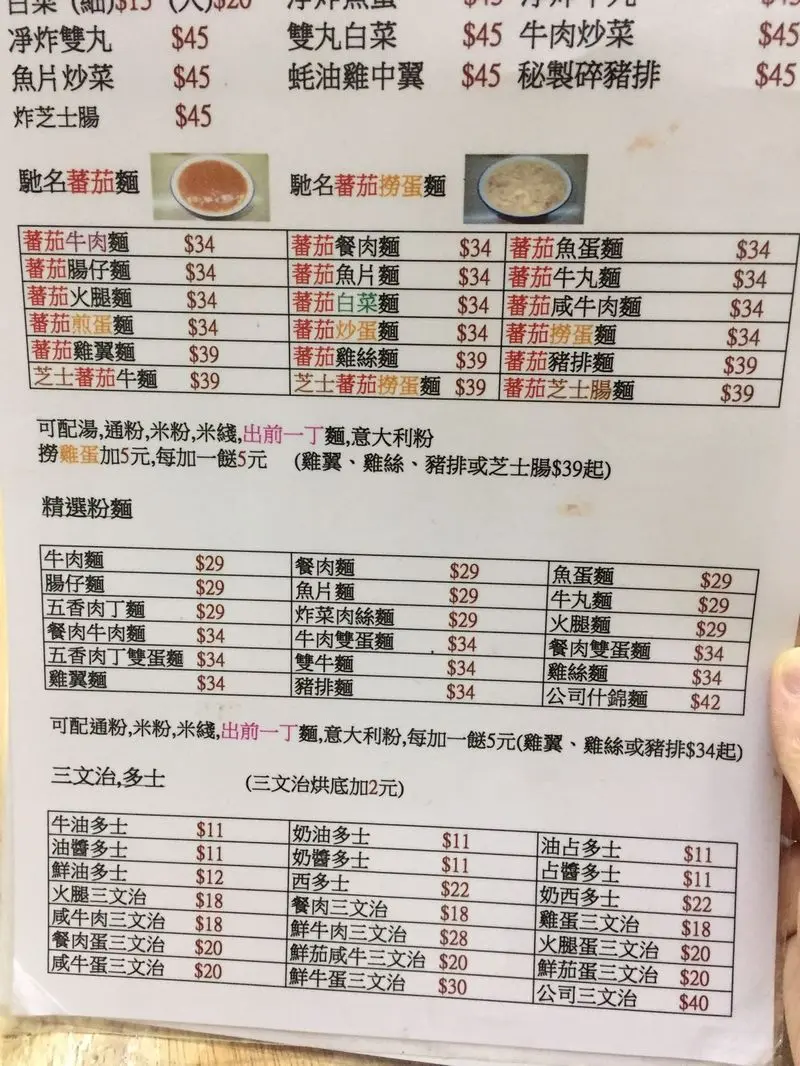 白菜 (細)$15 (大)$20 淨炸魚蛋 $45 淨炸牛丸 $45
淨炸雙丸 $45 雙丸白菜 $45 牛肉炒菜 $45
魚片炒菜 $45 蚝油雞中翼 $45 秘製碎豬排 $45
炸芝士腸 $45
馳名蕃茄麵 馳名蕃茄撈蛋麵
蕃茄牛肉麵 $34 蕃茄餐肉麵 $34 蕃茄魚蛋麵 $34
蕃茄腸仔麵 $34 蕃茄魚片麵 $34 蕃茄牛丸麵 $34
蕃茄火腿麵 $34 蕃茄白菜麵 $34 蕃茄咸牛肉麵 $34
蕃茄煎蛋麵 $34 蕃茄炒蛋麵 $34 蕃茄撈蛋麵 $34
蕃茄雞翼麵 $39 蕃茄雞絲麵 $39 蕃茄豬排麵 $39
芝士蕃茄牛麵 $39 芝士蕃茄撈蛋麵 $39 蕃茄芝士腸麵 $39
可配湯,通粉,米粉,米綫,出前一丁麵,意大利粉
撈雞蛋加5元,每加一餸5元 (雞翼、雞絲、豬排或芝士腸$39起)
精選粉麵
牛肉麵 $29 餐肉麵 $29 魚蛋麵 $29
腸仔麵 $29 魚片麵 $29 牛丸麵 $29
五香肉丁麵 $29 炸菜肉絲麵 $29 火腿麵 $29
餐肉牛肉麵 $34 牛肉雙蛋麵 $34 餐肉雙蛋麵 $34
五香肉丁雙蛋麵 $34 雙牛麵 $34 雞絲麵 $34
雞翼麵 $34 豬排麵 $34 公司什錦麵 $42
可配通粉,米粉,米綫,出前一丁麵,意大利粉,每加一餸5元(雞翼、雞絲或豬排$34起)
三文治,多士 (三文治烘底加2元)
牛油多士 $11 奶油多士 $11 油占多士 $11
油醬多士 $11 奶醬多士 $11 占醬多士 $11
鮮油多士 $12 西多士 $22 奶西多士 $22
火腿三文治 $18 餐肉三文治 $18 雞蛋三文治 $18
咸牛肉三文治 $18 鮮牛肉三文治 $28 火腿蛋三文治 $20
餐肉蛋三文治 $20 鮮茄咸牛三文治 $20 鮮茄蛋三文治 $20
咸牛蛋三文治 $20 鮮牛蛋三文治 $30 公司三文治 $40